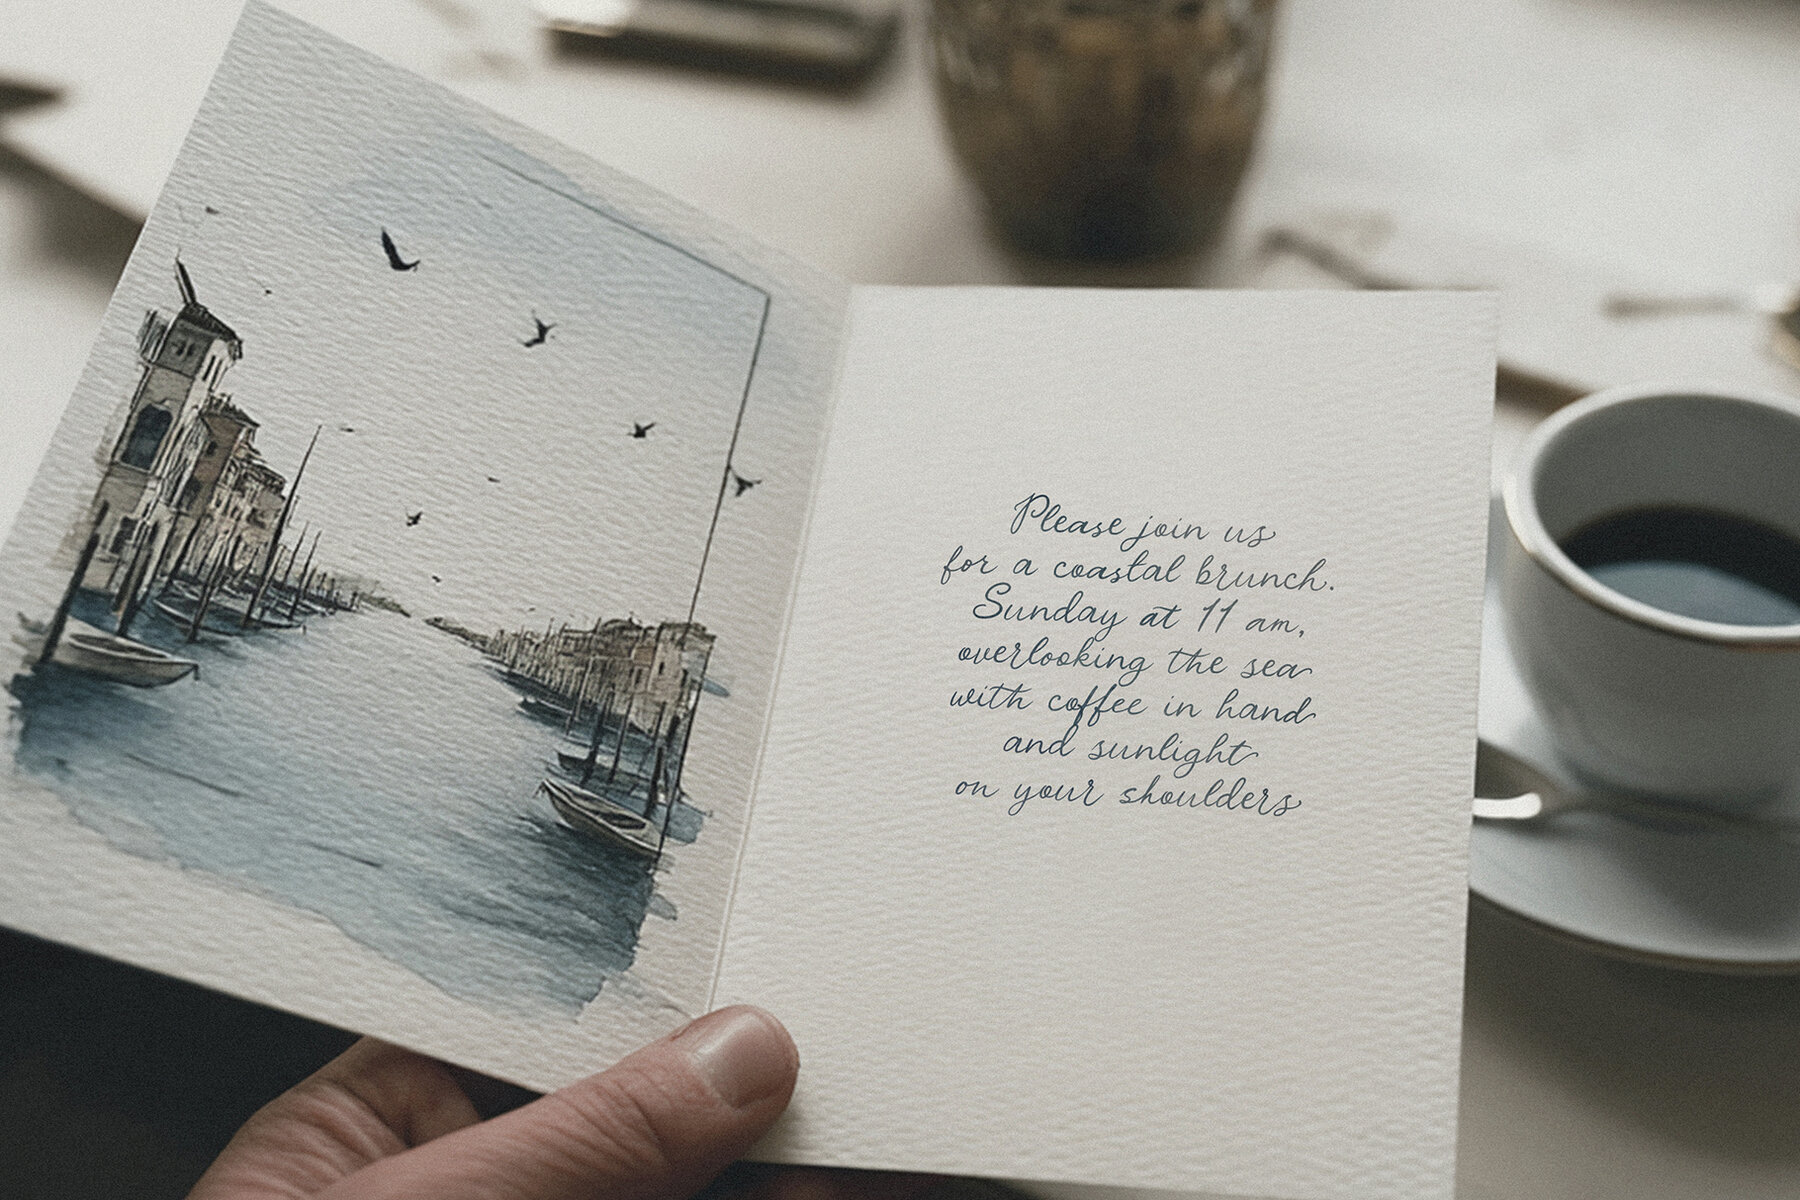 Please join us
for a coastal brunch.
Sunday at 11 am,
overlooking the sea
with coffee in hand
and sunlight
on your shoulders